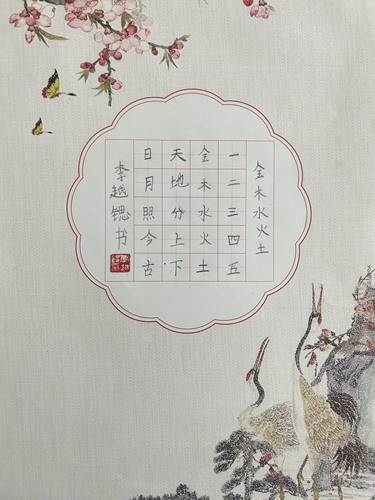 金木水火土
一二三四五
金木水火土
天地分上下
日月照今古
李越锶书